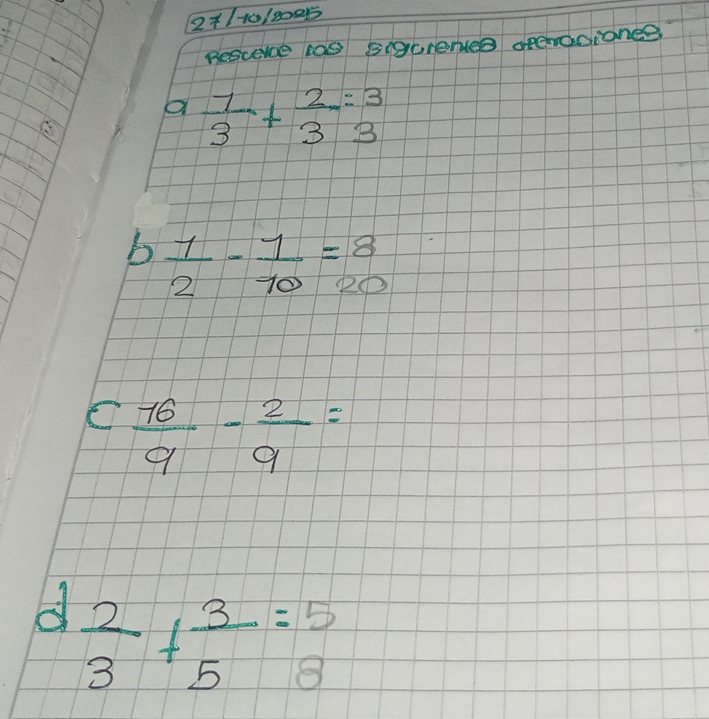 27/10/2025
Resuelve las siguientes operaciones
a 1/3 + 2/3 = 3/3
b 1/2 - 1/10 = 8/20
c 16/9 - 2/9 =
d 2/3 + 3/5 = 5/8